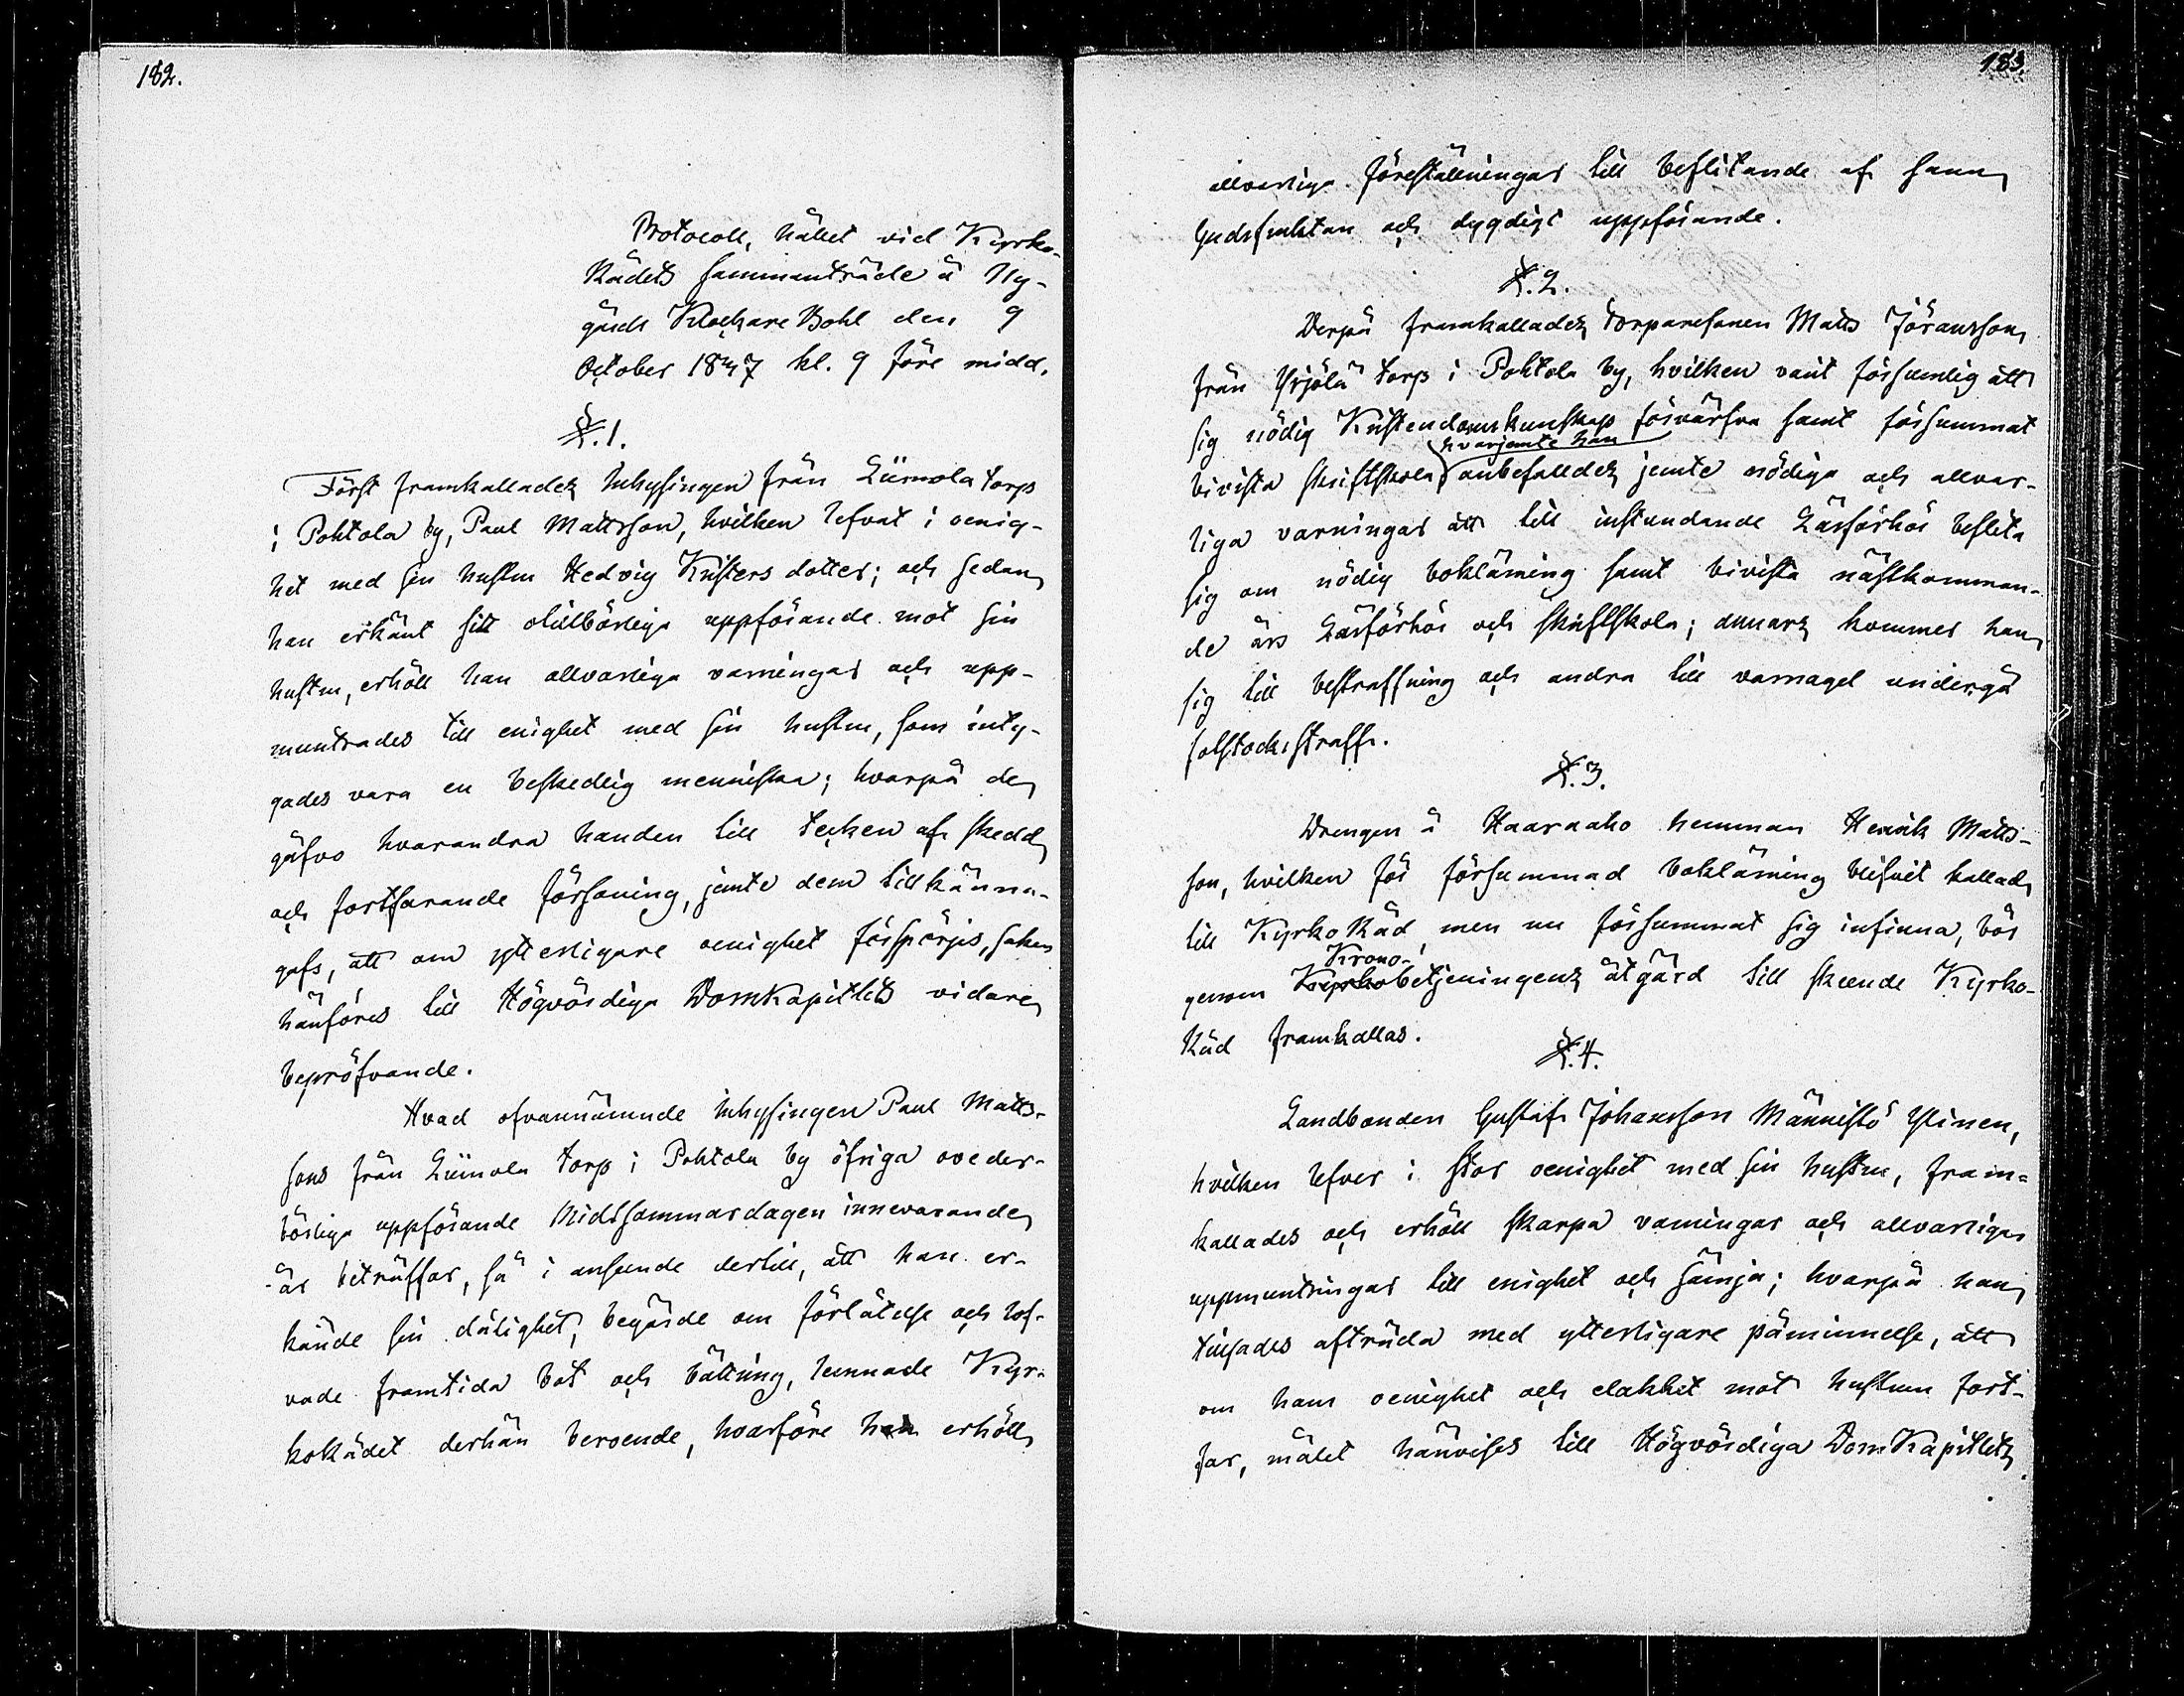 182.
Protocoll, hållet vid Kyrko-
Rådets sammanträde å Ny-
gårds Klockare Bohl den 9
October 1847 kl. 9 före midd.
§.1.
Först framkallades Inhysingen från Liimola torp
i Pohtola by, Paul Mattsson, hvilken lefvat i oenig-
het med sin hustru Hedvig Kristers dotter; och sedan
han erkänt sitt otillbörliga uppförande mot sin
hustru, erhöll han allvarliga varningar och upp-
muntrades till enighet med sin hustru, som inty-
gades vara en beskedlig menniska; hvarpå de
gåfvo hvarandra handen till tecken af skedd
och fortfarande försoning, jemte dem tillkänna-
gafs, att om ytterligare oenighet förspörjes, saken
hänföres till Högvördiga DomKapitlets vidare
bepröfvande.
Hvad ofvannämnde inhysingen Paul Matts-
sons från Liimola torp i Pohtola by öfriga oveder-
börliga uppförande Midsommardagen innevarande
år beträffar, så i anseende dertill, att han er-
kände sin dålighet, begärde om förlåtelse och lof-
vade framtida bot och bättring, lemnade Kyr-
koRådet derhän beroende, hvarföre han erhöll
183.
allvarliga föreställningar till beflitande af sann
Gudsfruktan och dygdigt uppförande.
§.2.
Derpå framkallades torparesonen Matts Jöransson
från Yrjölä torp i Pohtola by, hvilken varit försumlig att
sig nödig Kristendomskunskap förvärfva samt försummat
hvarjemte han
bivista skriftskola anbefalldes jemte nödiga och allvar-
liga varningar att till instundande Läsförhör beflita
sig om nödig boklärning samt bivista nästkomman-
de års Läsförhör och skriftskola; annars kommer han
sig till bestraffning och andra till varnagel undergå
solstockstraff.
§.3.
Drengen å Haaraaho hemman Henrik Matts-
son, hvilken för försummad boklärning blifvit kallad
till Kyrko Råd, men nu försummat sig infinna, bör
Krono-
genom Kyrkobetjeningens åtgärd till skeende Kyrko-
Råd framkallas.
§.4.
Landbonden Gustaf Johansson Männistö Ylinen,
hvilken lefver i stor oenighet med sin hustru, fram-
kallades och erhöll skarpa varningar och allvarliga
uppmuntringar till enighet och sämja; hvarpå han
tillsades afträda med ytterligare påminnelse, att
om hans oenighet och elakhet mot hustrun fort-
far, målet hänvises till Högvördiga DomKapitlets